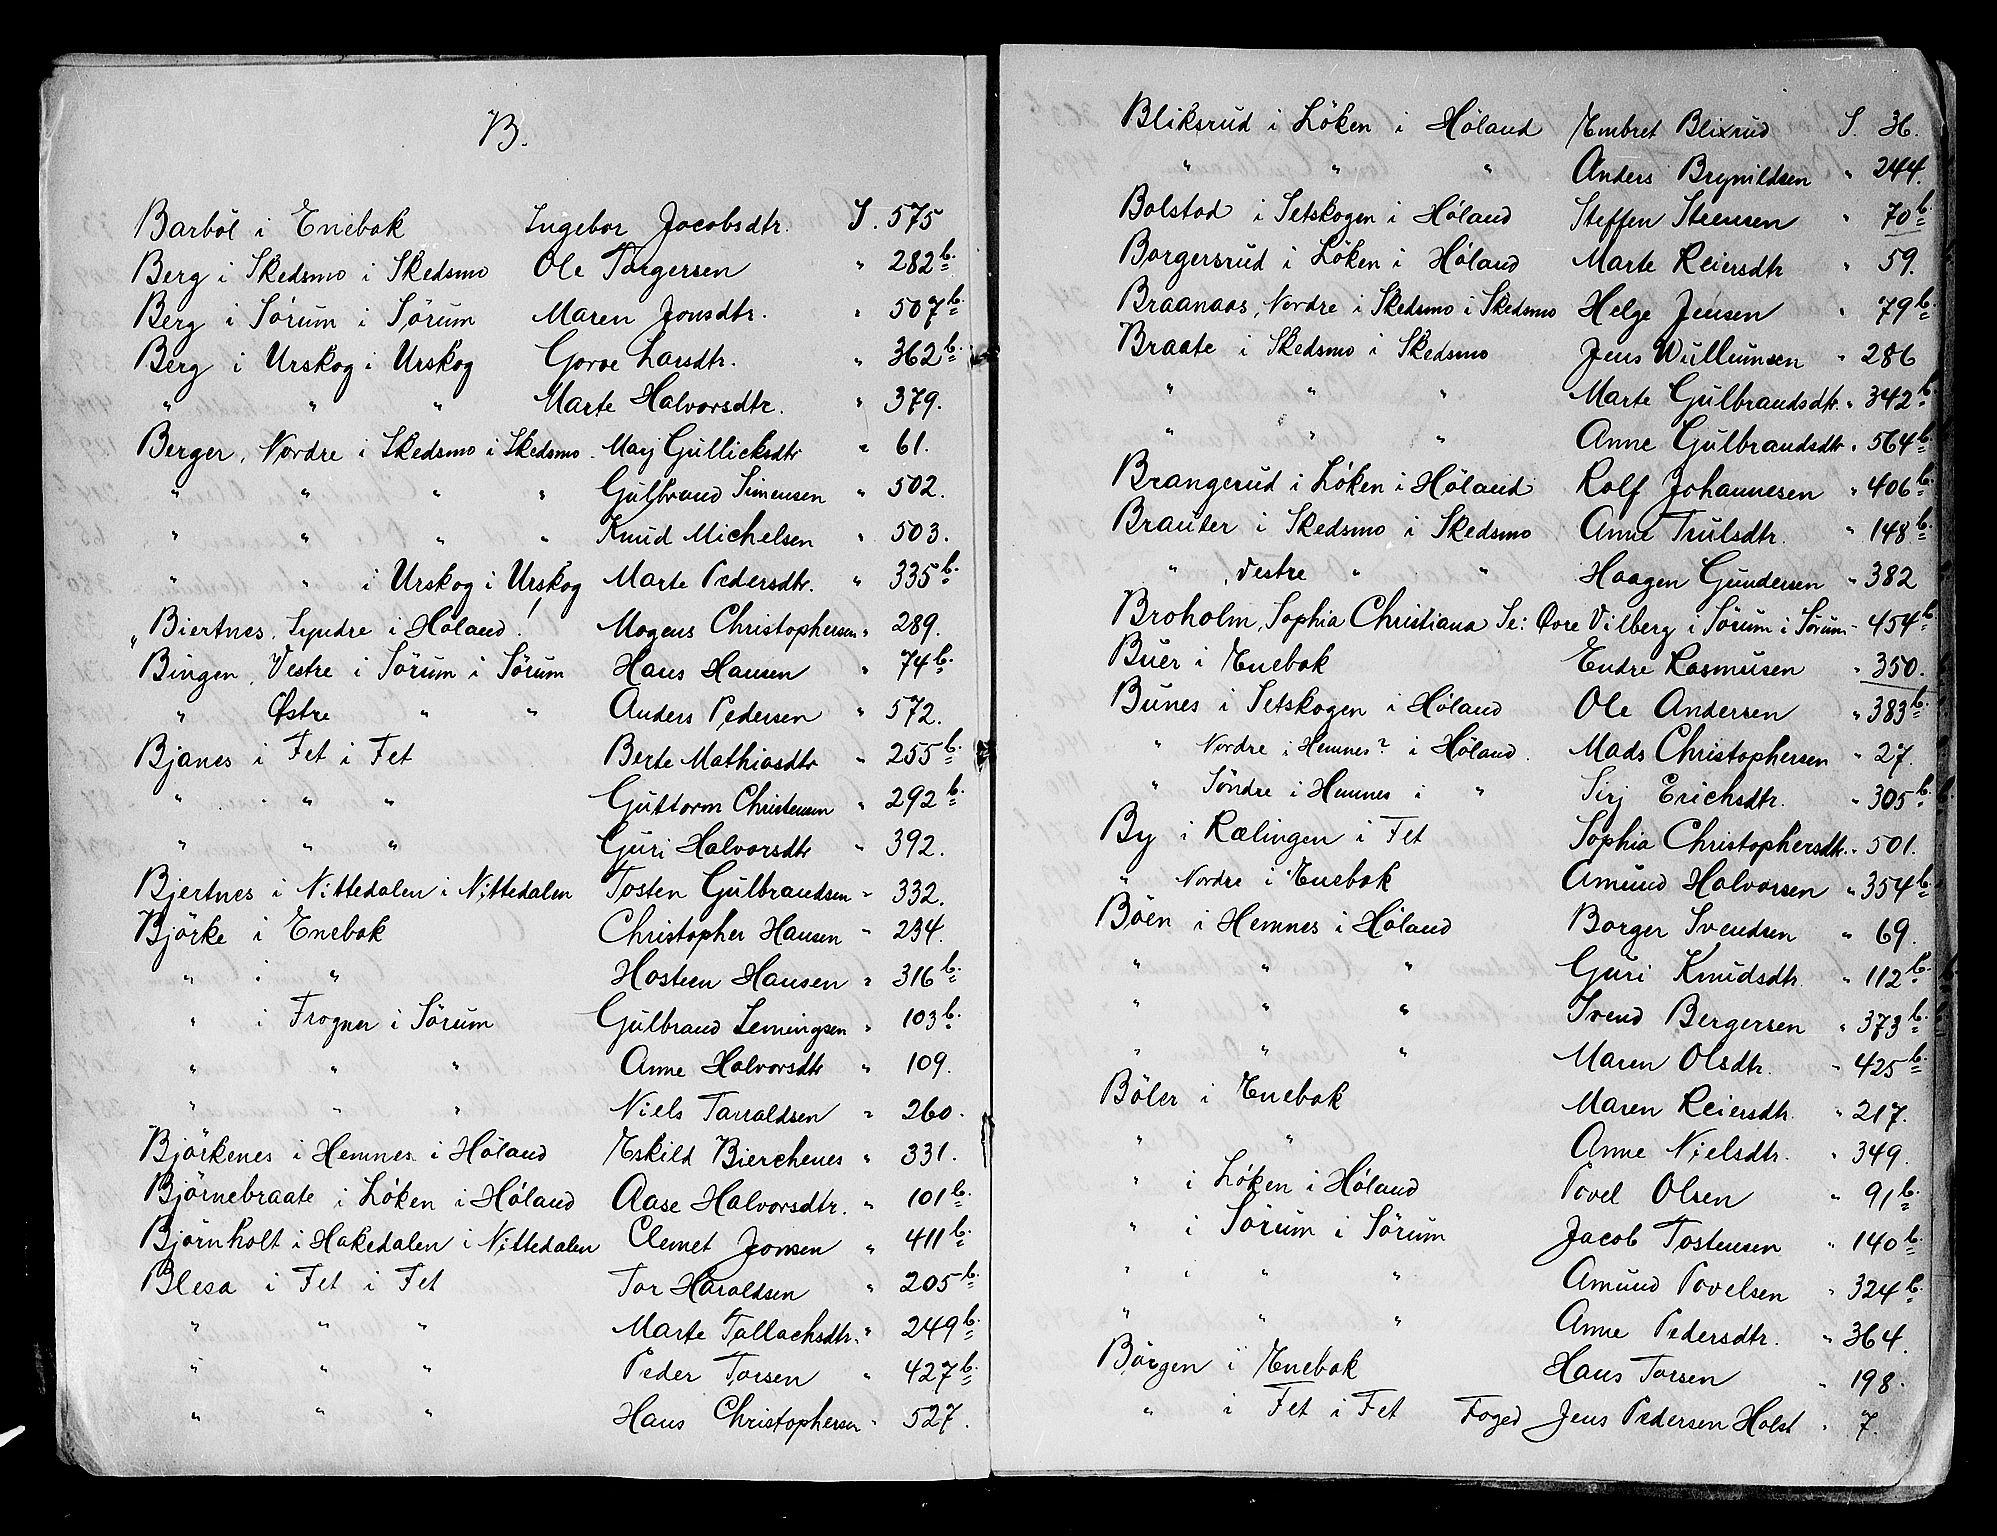 B.
Barböl i Enebak Ingebor Jacobsdtr. S. 575
Berg i Skedsmo i Skedsmo Ole Torgersen " 282 b.
Berg i Sörum i Sörum Maren Jonsdtr. " 507 b.
Berg i Urskog i Urskog Goroe Larsdtr. " 362 b.
" " " Marte Halvorsdtr. " 379.
Berger, Nordre i Skedsmo i Skedsmo. Marj Gullicksdtr " 61.
" " " " Gülbrand Simensen " 502.
" " " " Knud Michelsen " 503.
" " i Urskog i Urskog Marte Pedersdtr. " 335 b.
" Biertnes, Syndre i Höland! Mogens Christophersen " 289.
Bingen, Vestre i Sörum i Sörum Hans Hansen " 74 b.
" Østre " " Anders Pedersen " 572.
Bjanes i Fet i Fet Berte Mathiasdtr " 255 b.
" " " Güttorm Christensen " 292 b.
" " " Güri Halvorsdtr " 392.
Bjertnes i Nittedalen i Nittedalen Tosten Gülbrandsen " 332.
Björke i Enebak Christopher Hansen " 234.
" i " Hosteen Hansen " 316 b.
" i Frogner i Sörum Gülbrand Lemingsen " 103 b.
" " " Anne Halvorsdtr " 109.
" " " Niels Tarraldsen " 260.
Björkenes i Hemnes i Höland Eskild Bierchenes " 331.
Björnebraate i Löken i Höland Aase Halvorsdtr. " 101 b.
Björnholt i Hakedalen i Nittedalen Clemet Jonsen " 411 b.
Blesa i Fet i Fet Tor Haraldsen " 205 b.
" " " Marte Tallachsdtr. " 249 b.
" " " Peder Torsen " 427 b.
" " " Hans Christophersen " 527.
Bliksrud i Löken i Höland Embret Blixrud S. 36.
" " " Anders Brynildsen " 244.
Bolstad i Setskogen i Höland Steffen Steensen " 70 b.
Borgersrud i Löken i Höland Marte Reiersdtr " 59.
Braanaas, Nordre i Skedsmo i Skedsmo Helge Jensen " 79 b.
Braate i Skedsmo i Skedsmo Jens Wüllumsen " 286
" " " Marte Gülbrandsdtr. " 342 b.
" " " Anne Gülbrandsdtr " 564 b.
Brangerud i Löken i Höland Rolf Johannesen " 406 b.
Brauter i Skedsmo i Skedsmo Anne Trulsdtr. " 148 b.
" , Vestre " " Haagen Gundersen " 382
Broholm, Sophia Christiana Se: Øvre Vilberg i Sörum i Sörum " 454 b.
Büer i Enebak Endre Rasmüsen " 350.
Bünes i Setskogen i Höland Ole Andersen " 383 b.
" Nordre i Hemnes? i Höland. Mads Christophersen " 27.
" Söndre i Hemnes i " Sirj Erichsdtr. " 305 b.
By i Rælingen i Fet Sophia Christophersdtr. " 501.
" Nordre i Enebak Amund Halvorsen " 354 b.
Böen i Hemnes i Höland Borger Svendsen " 69.
" " " Güri Knüdsdtr. " 112 b.
" " " Svend Bergersen " 373 b.
" " " Maren Olsdtr. " 425 b.
Böler i Enebak Maren Reiersdtr. " 217.
" " Anne Nielsdtr. " 349.
" i Löken i Höland Povel Olsen " 91 b.
" i Sörum i Sörum Jacob Tostensen " 140 b.
" i " " Amünd Povelsen " 324 b.
" " " Anne Pedersdtr. " 364.
Börgen i Enebak Hans Torsen " 198.
" i Fet i Fet Foged Jens Pedersen Holst " 7.